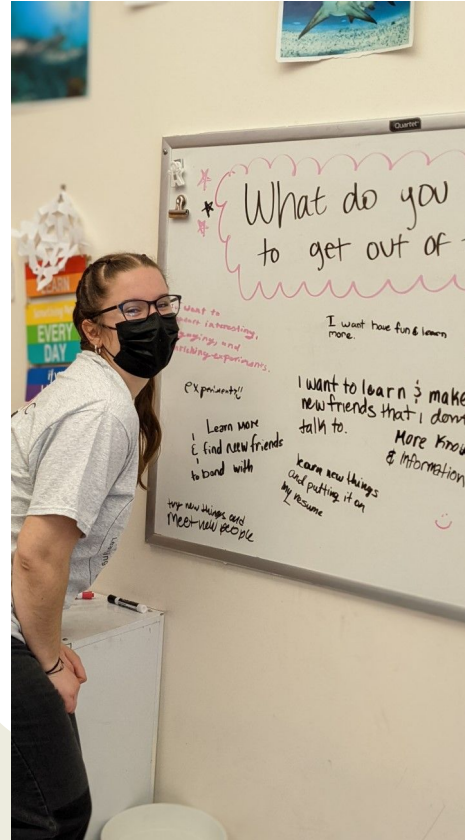 Quartet
What do you
to get out of
want to
interesting,
and
experiments.
I want have fun & learn
more.
EVERY
DAY
experiments!!
I want to learn & make
new friends that I don't
talk to.
Learn More
& find new friends
to bond with
More Know
& Information
learn new things
and putting it on
my resume
try new things and
Meet new people